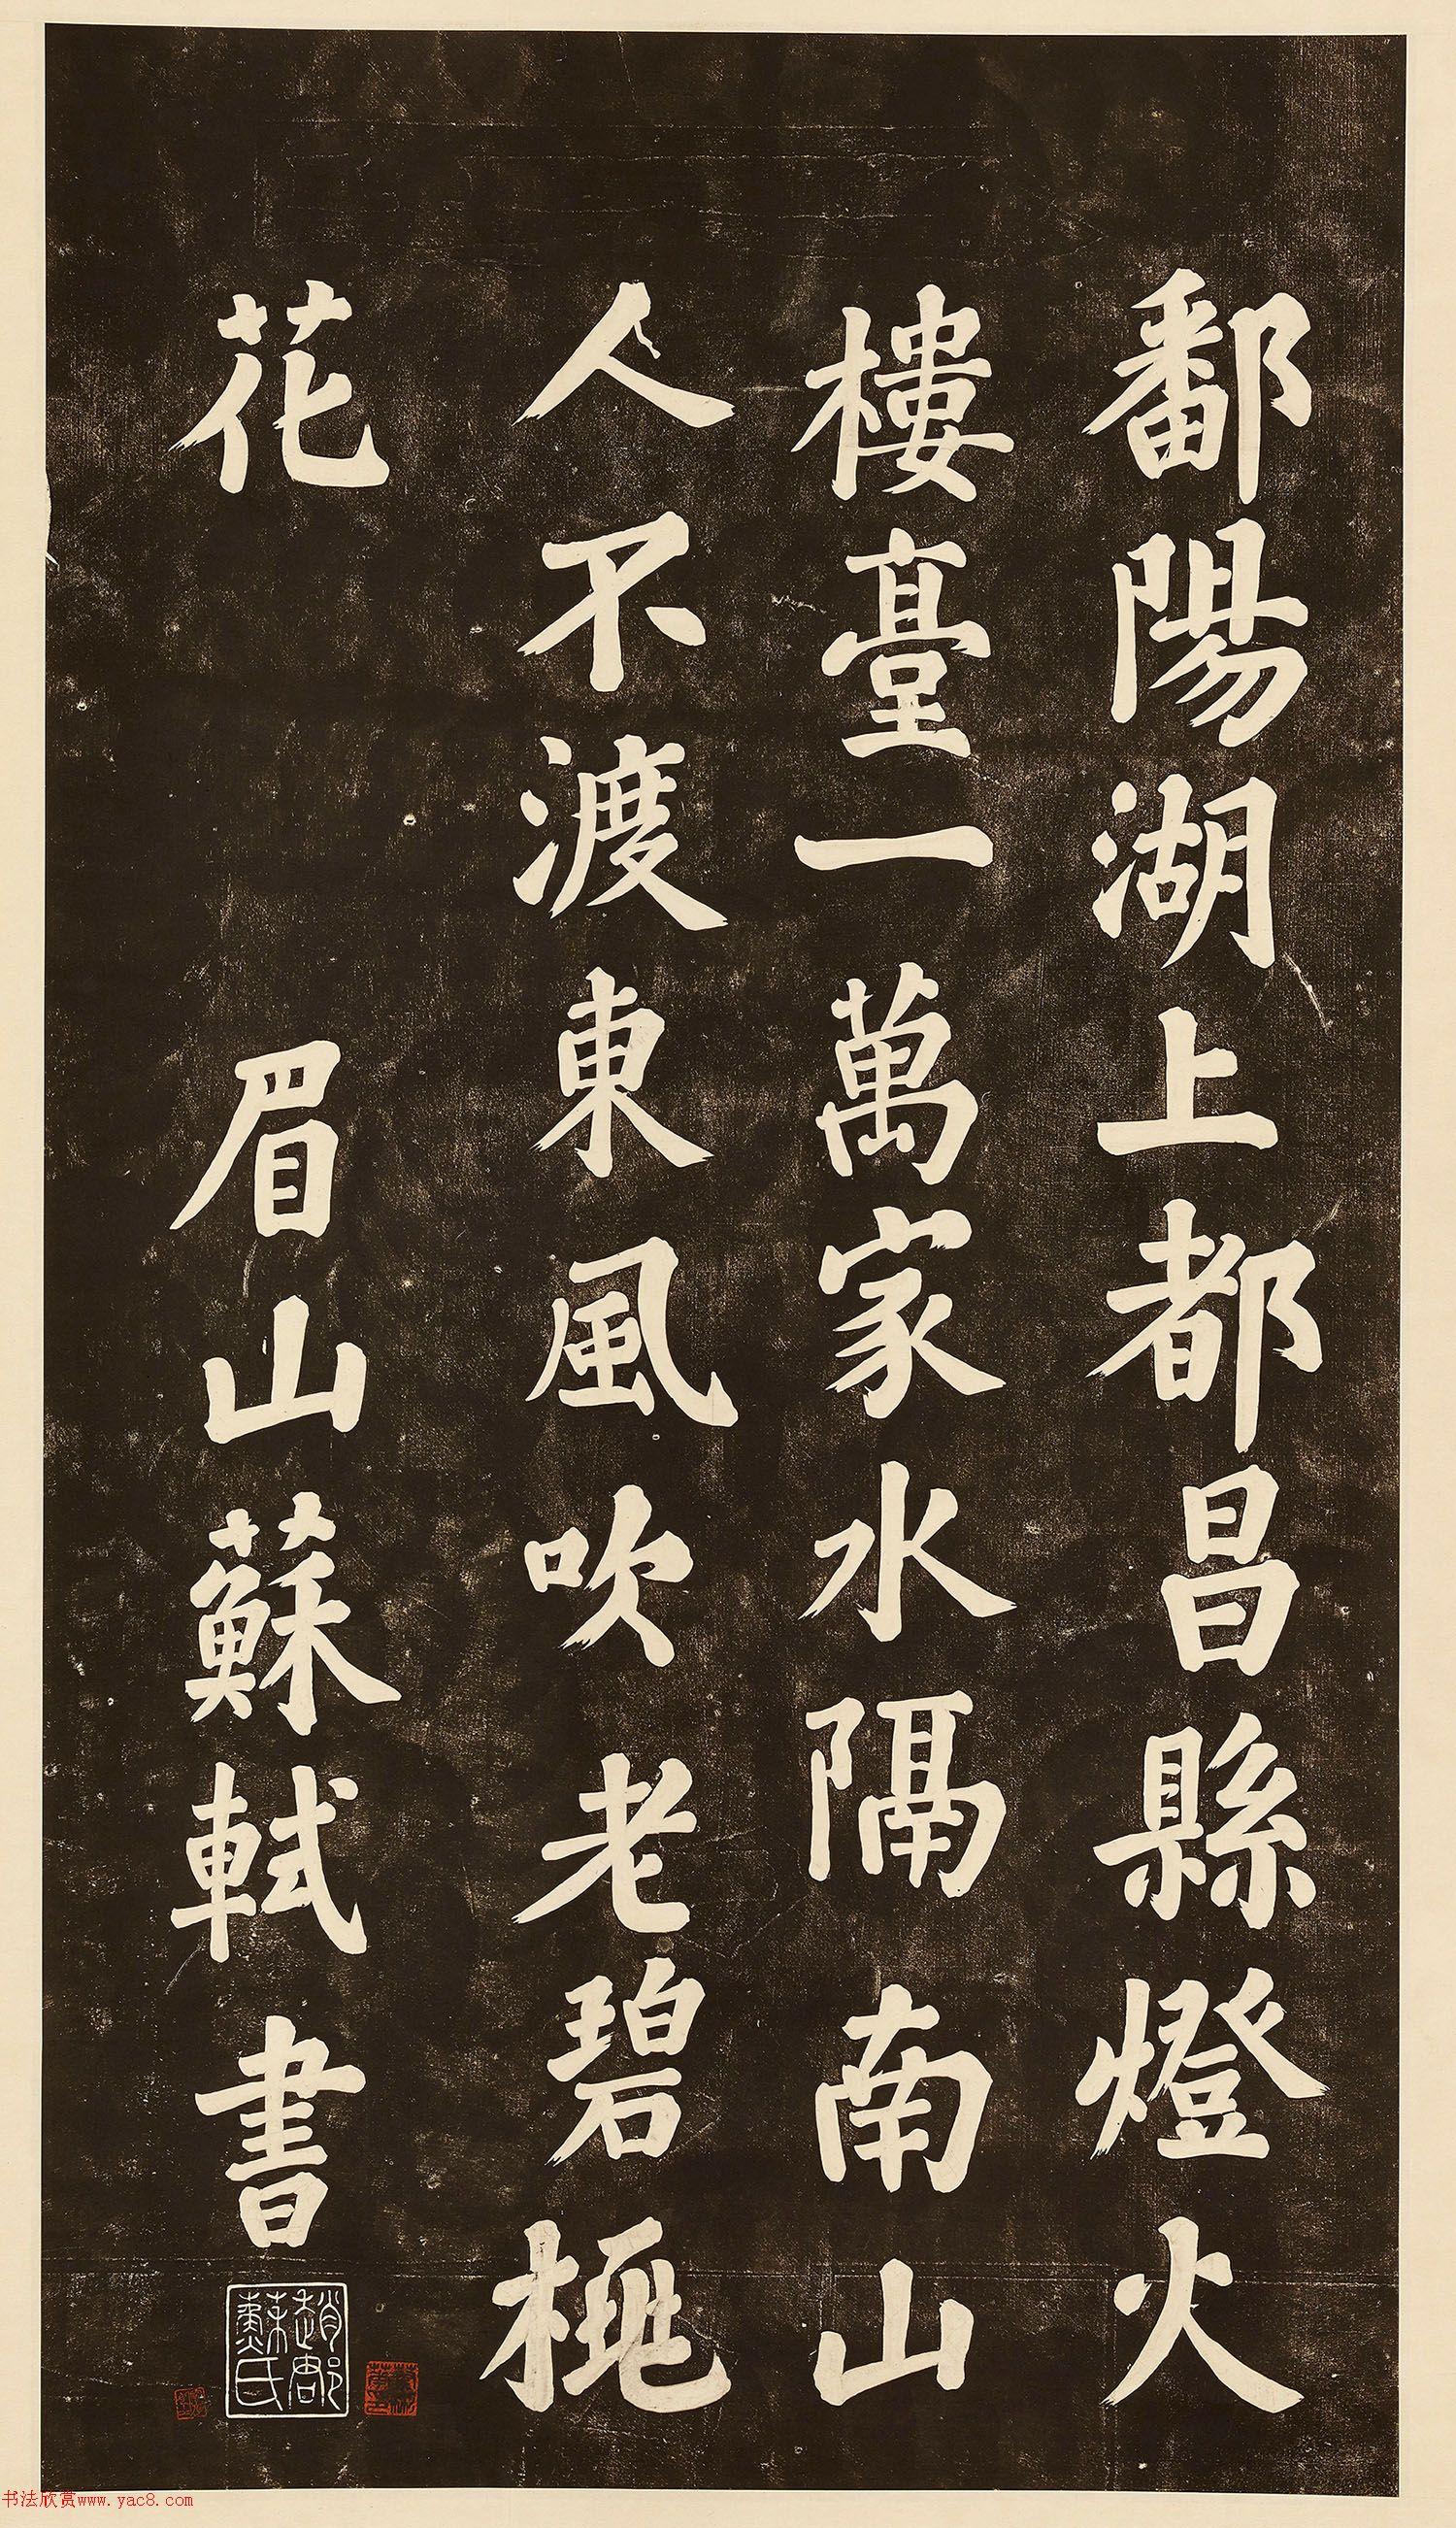 鄱陽湖上都昌縣燈火
樓臺一萬家水隔南山
人不渡東風吹老碧桃
花 眉山蘇軾書
趙郡蘇氏
书法欣赏www.yac8.com